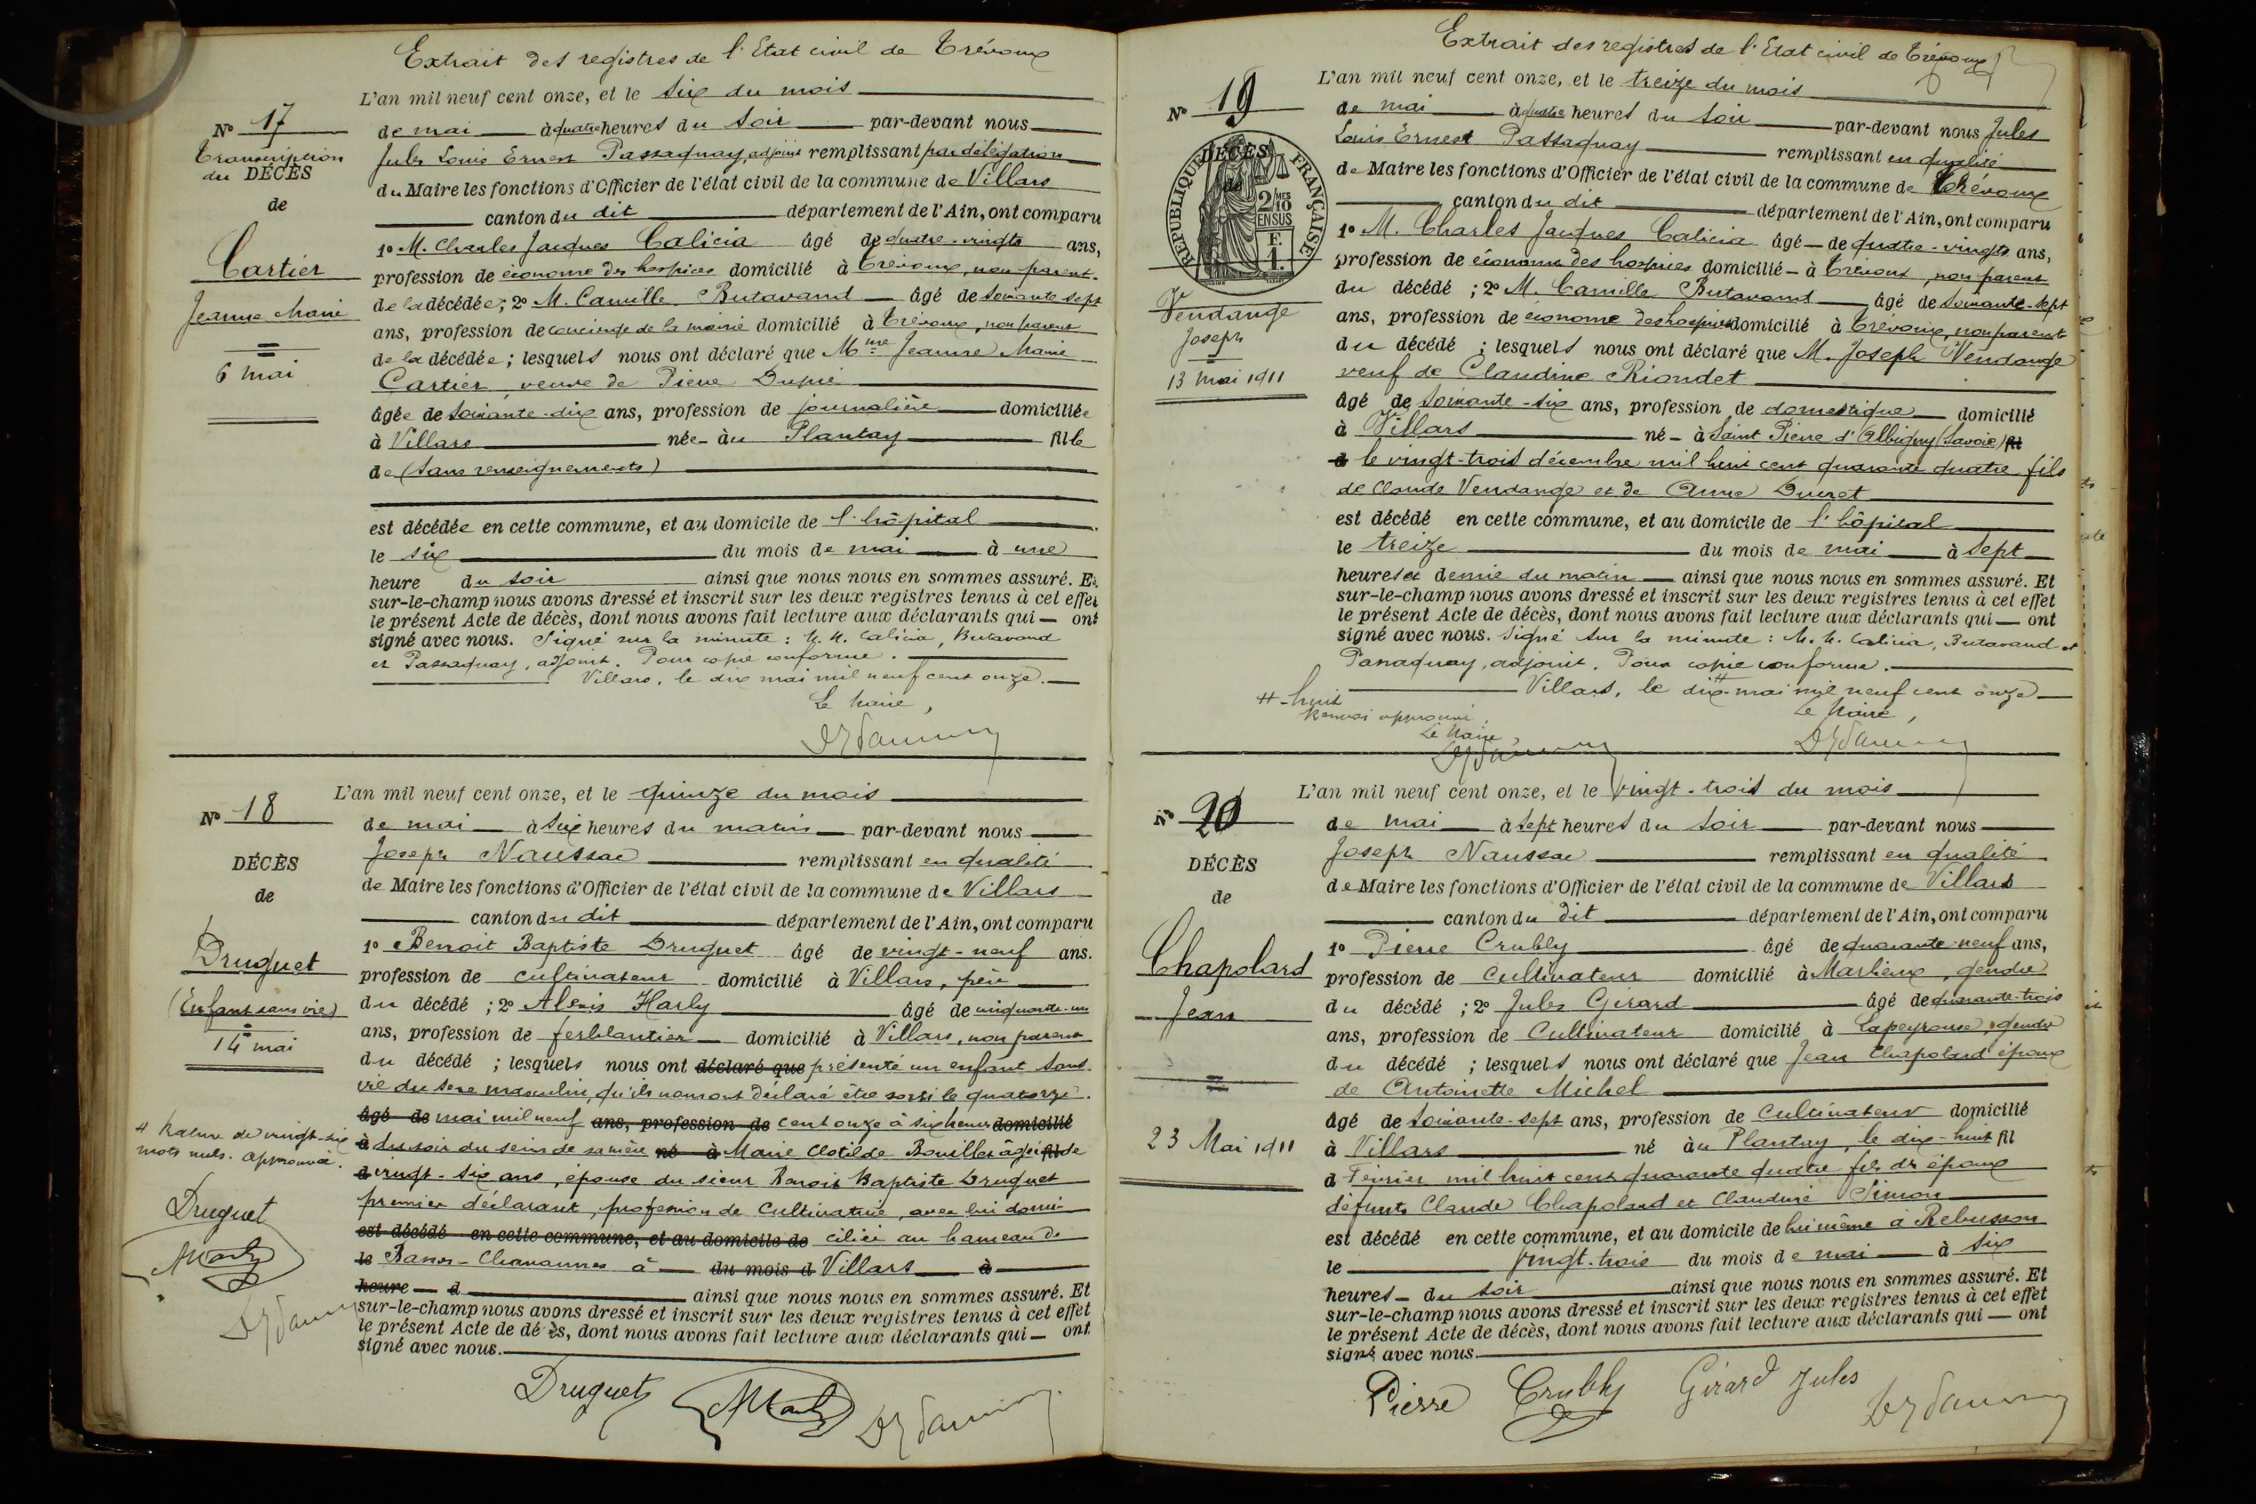 Extrait des registres de l'Etat civil de Trévoux
L'an mil neuf cent onze, et le six du mois
N° 17
Transcription
du DÉCÈS
de
Cartier
Jeanne Marie
6 mai
de mai à quatre heures du soir par-devant nous
Jules Louis Ernest Passaquay, adjoint remplissant par délégation
du Maire les fonctions d'Officier de l'état civil de la commune de Villars
canton du dit département de l'Ain, ont comparu
1° M. Charles Jacques Calicia âgé de quatre-vingts ans,
profession de économe des hospices domicilié à Trévoux, non parent
de la décédée ; 2° M. Camille Butavand âgé de soixante sept
ans, profession de concierge de la mairie domicilié à Trévoux, non parent
de la décédée ; lesquels nous ont déclaré que Mme Jeanne Marie
Cartier, veuve de Pierre Dupié
âgée de soixante-dix ans, profession de journalière domiciliée
à Villars née au Plantay fille
de (sans renseignements)
est décédée en cette commune, et au domicile de l'hôpital
le six du mois de mai à une
heure du soir ainsi que nous nous en sommes assuré. Et
sur-le-champ nous avons dressé et inscrit sur les deux registres tenus à cet effet
le présent Acte de décès, dont nous avons fait lecture aux déclarants qui ont
signé avec nous. Signé sur la minute : M. M. Calicia, Butavand
et Passaquay, adjoint. Pour copie conforme.
Villars, le dix mai mil neuf cent onze.
Le Maire,
N° 18
DÉCÈS
de
Druguet
(Enfant sans vie)
14 mai
L'an mil neuf cent onze, et le quinze du mois
de mai à six heures du matin par-devant nous
Joseph Naussac remplissant en qualité
de Maire les fonctions d'Officier de l'état civil de la commune de Villars
canton du dit département de l'Ain, ont comparu
1° Benoit Baptiste Druguet âgé de vingt-neuf ans.
profession de cultivateur domicilié à Villars, père
du décédé ; 2° Alexis Harly âgé de cinquante-un
ans, profession de ferblantier domicilié à Villars, non parent
du décédé ; lesquels nous ont déclaré que présenté un enfant sans
vie du sexe masculin, qu'ils nous ont déclaré être sorti le quatorze
âgé de mai mil neuf ans, profession de cent onze à six heures domicilié
à du soir du sein de sa mère né à Marie Clotilde Bouiller âgée fil de
d vingt-six ans, épouse du sieur Benoit Baptiste Druguet
premier déclarant, profession de cultivatrice, avec lui domi-
est décédé en cette commune, et au domicile de cilié au hameau de
le Chavannes à du mois d Villars à
heure d ainsi que nous nous en sommes assuré. Et
sur-le-champ nous avons dressé et inscrit sur les deux registres tenus à cet effet
le présent Acte de décès, dont nous avons fait lecture aux déclarants qui ont
signé avec nous.
Rature de vingt-six
mots nuls. approuvée.
Druguet
Druguet
Extrait des registres de l'Etat civil de Trévoux
L'an mil neuf cent onze, et le treize du mois
N° 19
DÉCÈS
de
RÉPUBLIQUE FRANÇAISE
2/10 MES
EN SUS
F.
1.
Vendange
Joseph
13 mai 1911
de mai à quatre heures du soir par-devant nous Jules
Louis Ernest Passaquay remplissant en qualité
de Maire les fonctions d'Officier de l'état civil de la commune de Trévoux
canton du dit département de l'Ain, ont comparu
1° M. Charles Jacques Calicia âgé de quatre-vingts ans,
profession de économe des hospices domicilié à Trévoux, non parent
du décédé ; 2° M. Camille Butavand âgé de soixante-sept
ans, profession de économe des hospices domicilié à Trévoux, non parent
du décédé ; lesquels nous ont déclaré que M. Joseph Vendange
veuf de Claudine Riondet
âgé de soixante-six ans, profession de domestique domicilié
à Villars né à Saint Pierre d'Albigny (Savoie) fil
d le vingt-trois décembre mil huit cent quarante quatre fils
de Claude Vendange et de Anne Ducret
est décédé en cette commune, et au domicile de l'hôpital
le treize du mois de mai à sept
heures et demie du matin ainsi que nous nous en sommes assuré. Et
sur-le-champ nous avons dressé et inscrit sur les deux registres tenus à cet effet
le présent Acte de décès, dont nous avons fait lecture aux déclarants qui ont
signé avec nous. Signé sur la minute : M. M. Calicia, Butavand et
Passaquay, adjoint. Pour copie conforme.
Villars, le dix # mai mil neuf cent onze
Le Maire,
# huit
Renvoi approuvé,
Le Maire,
N° 20
DÉCÈS
de
Chapolard
Jean
23 Mai 1911
L'an mil neuf cent onze, et le vingt-trois du mois
de mai à sept heures du soir par-devant nous
Joseph Naussac remplissant en qualité
de Maire les fonctions d'Officier de l'état civil de la commune de Villars
canton du dit département de l'Ain, ont comparu
1° Pierre Crubly âgé de quarante-neuf ans,
profession de cultivateur domicilié à Marlieux, gendre
du décédé ; 2° Jules Girard âgé de quarante-trois
ans, profession de Cultivateur domicilié à Lapeyrouse, gendre
du décédé ; lesquels nous ont déclaré que Jean Chapolard époux
de Antoinette Michel
âgé de soixante-sept ans, profession de cultivateur domicilié
à Villars né au Plantay, le dix-huit fil
d Février mil huit cent quarante quatre fils des époux
défunts Claude Chapolard et Claudine Simon
est décédé en cette commune, et au domicile de lui même à Rebusson
le vingt-trois du mois de mai à six
heures du soir ainsi que nous nous en sommes assuré. Et
sur-le-champ nous avons dressé et inscrit sur les deux registres tenus à cet effet
le présent Acte de décès, dont nous avons fait lecture aux déclarants qui ont
signé avec nous.
Pierre Crubly Girard Jules